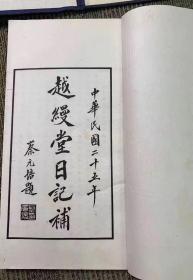 中華民國二十五年
越縵堂日記補
蔡元培題